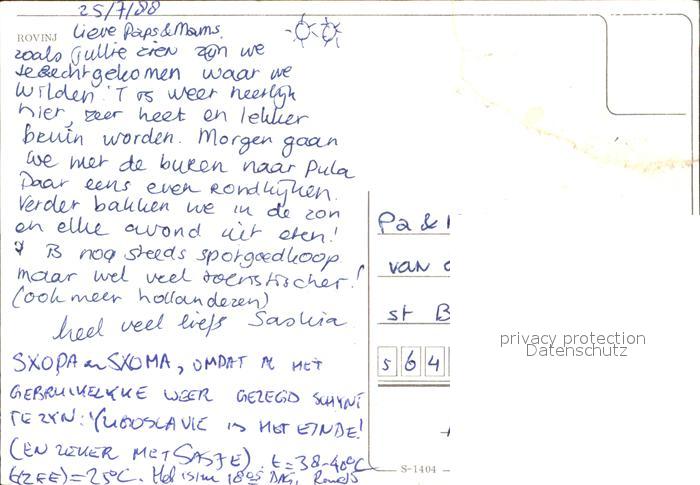 25/7/88
ROVINJ
Lieve Paps & Mams.
zoals jullie zien zijn we
terechtgekomen waar we
wilden. 'T is weer heerlijk
hier, zeer heet en lekker
bruin worden. Morgen gaan
we met de buren naar Pula
Daar eens even rondkijken.
Verder bakken we in de zon
en elke avond uit eten!
't Is nog steeds spotgoedkoop
maar wel veel toeristischer!
(ook meer hollanderen)
heel veel liefs Saskia
SXOPA en SXOMA, OMDAT IK HET
GEBRUIKELIJKE WEER GEZEGD SCHIJNT
TE ZIJN: YUGOSLAVIE IS HET EINDE!
(EN ZEKER MET SASJE) t = 38-40°C
t(ZEE) = 25°C.
Pa &
van
st B
5 6 4
S-1404
privacy protection
Datenschutz